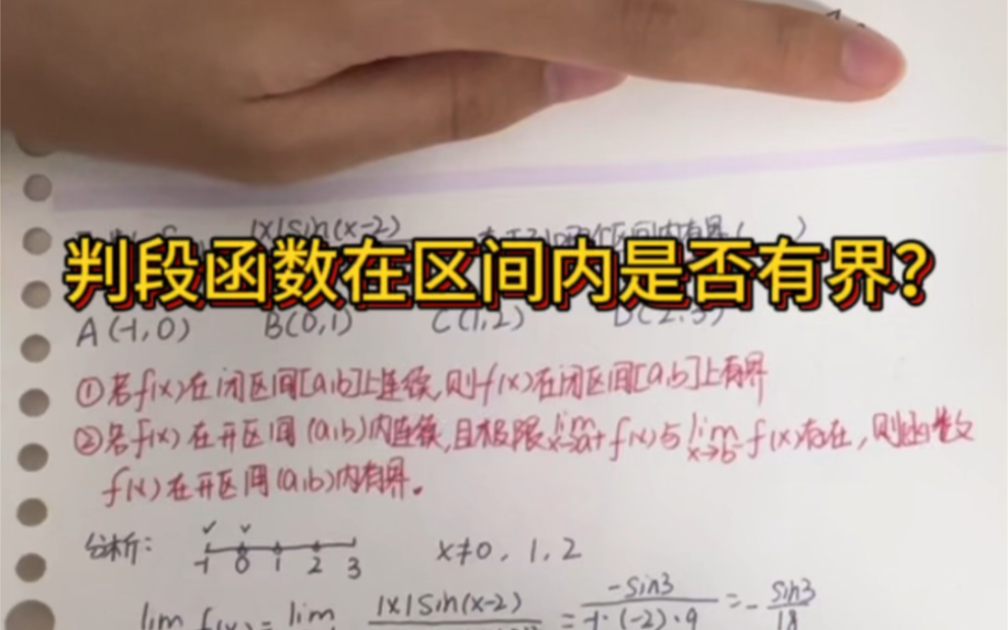 |x|sin(x-2)
判段函数在区间内是否有界?
A(-1,0) B(0,1) C(1,2) D(2,3)
①若f(x)在闭区间[a,b]上连续,则f(x)在闭区间[a,b]上有界
②若f(x)在开区间(a,b)内连续,且极限lim x→a+ f(x)与lim x→b- f(x)存在,则函数
f(x)在开区间(a,b)内有界。
分析: -1 0 1 2 3 x≠0, 1, 2
lim f(x) = lim |x|sin(x-2) = -sin3 / -1·(-2)·9 = - sin3 / 18